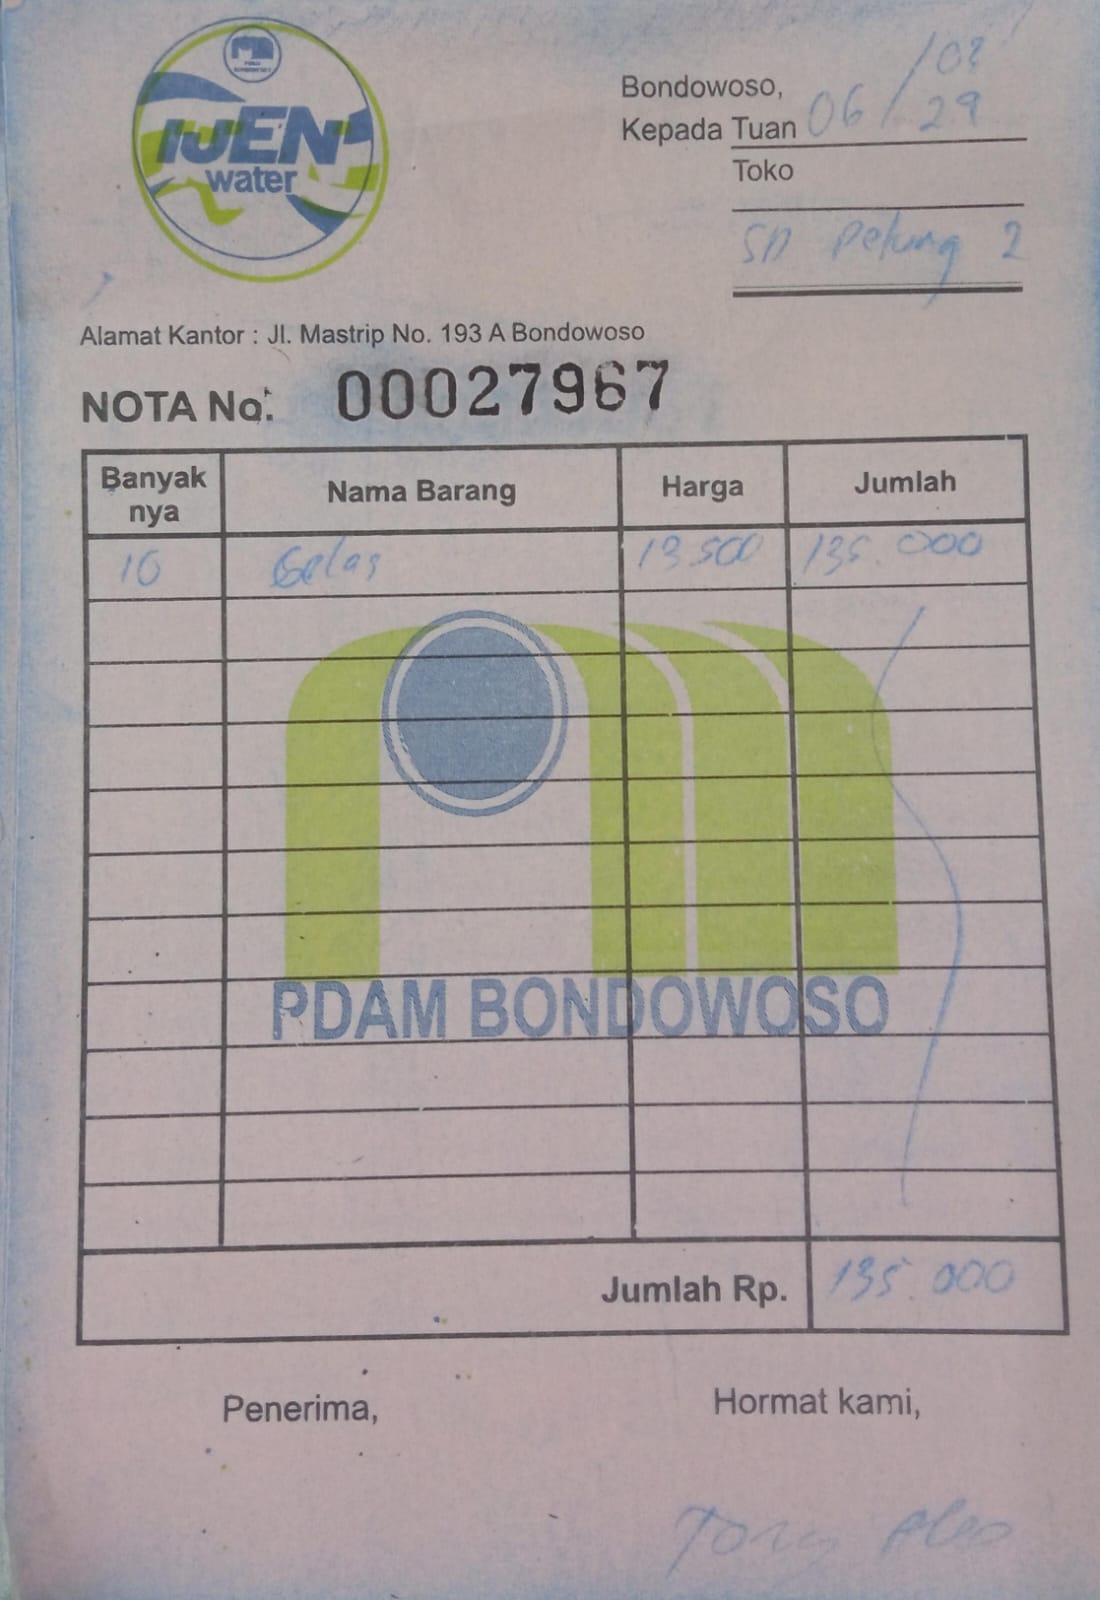 IJEN
water
Bondowoso,
Kepada Tuan 06/
Toko
SD Pelung 2
Alamat Kantor : Jl. Mastrip No. 193 A Bondowoso
NOTA No. 00027967
Banyak nya Nama Barang Harga Jumlah
10 Gelas 13.500 135.000
PDAM BONDOWOSO
Jumlah Rp. 135.000
Penerima, Hormat kami,
Tony